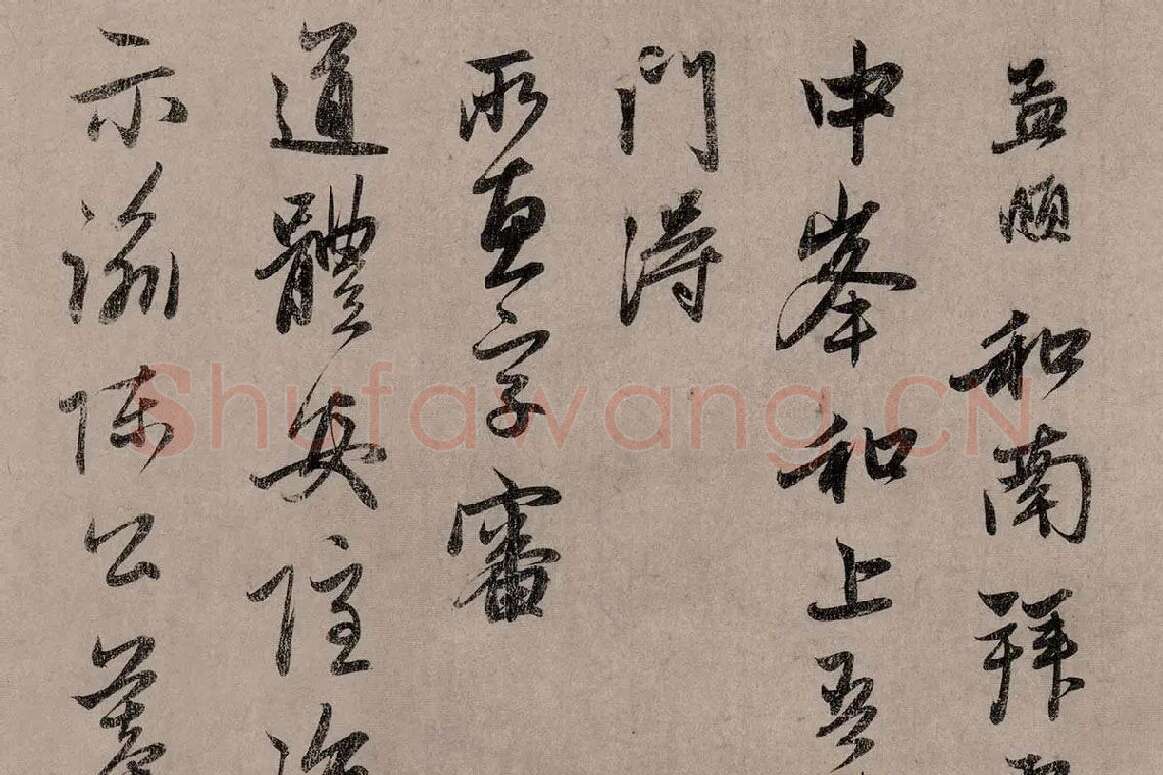 孟頫和南拜
中峯和上吾
門得
所惠字審
道體安隱
示諭陳公墓
Shufawang.CN